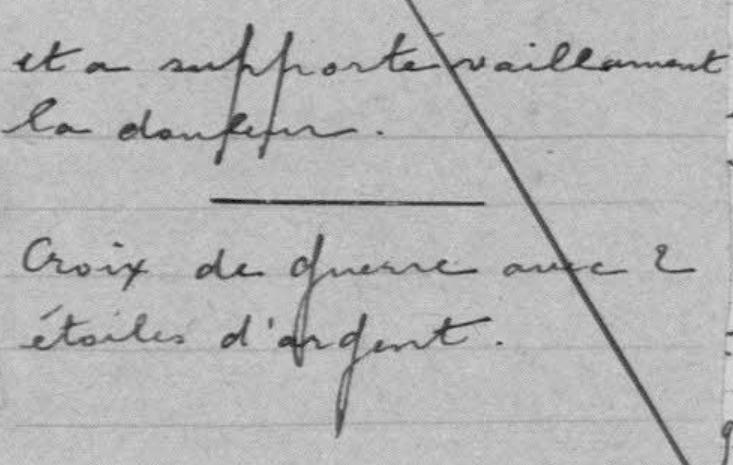 et a supporté vaillamment
la douleur.
Croix de guerre avec 2
étoiles d'argent.